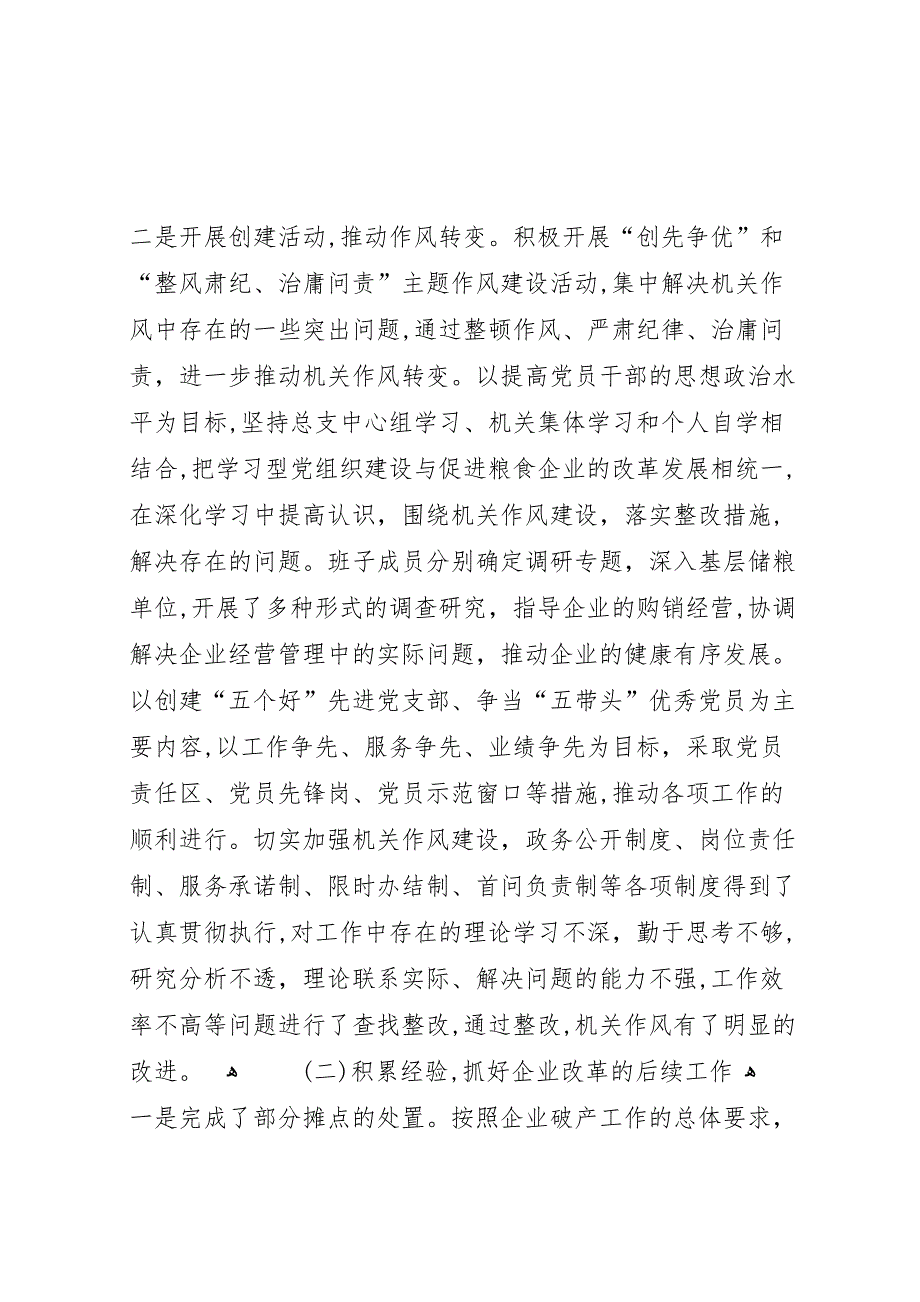 二是开展创建活动,推动作风转变。积极开展“创先争优”和
“整风肃纪、治庸问责”主题作风建设活动,集中解决机关作
风中存在的一些突出问题,通过整顿作风、严肃纪律、治庸问
责，进一步推动机关作风转变。以提高党员干部的思想政治水
平为目标,坚持总支中心组学习、机关集体学习和个人自学相
结合,把学习型党组织建设与促进粮食企业的改革发展相统一,
在深化学习中提高认识，围绕机关作风建设，落实整改措施,
解决存在的问题。班子成员分别确定调研专题，深入基层储粮
单位,开展了多种形式的调查研究，指导企业的购销经营,协调
解决企业经营管理中的实际问题，推动企业的健康有序发展。
以创建“五个好”先进党支部、争当“五带头”优秀党员为主
要内容,以工作争先、服务争先、业绩争先为目标，采取党员
责任区、党员先锋岗、党员示范窗口等措施,推动各项工作的
顺利进行。切实加强机关作风建设，政务公开制度、岗位责任
制、服务承诺制、限时办结制、首问负责制等各项制度得到了
认真贯彻执行,对工作中存在的理论学习不深，勤于思考不够,
研究分析不透，理论联系实际、解决问题的能力不强,工作效
率不高等问题进行了查找整改,通过整改,机关作风有了明显的
改进。 ﻫ (二)积累经验,抓好企业改革的后续工作 ﻫ
一是完成了部分摊点的处置。按照企业破产工作的总体要求，